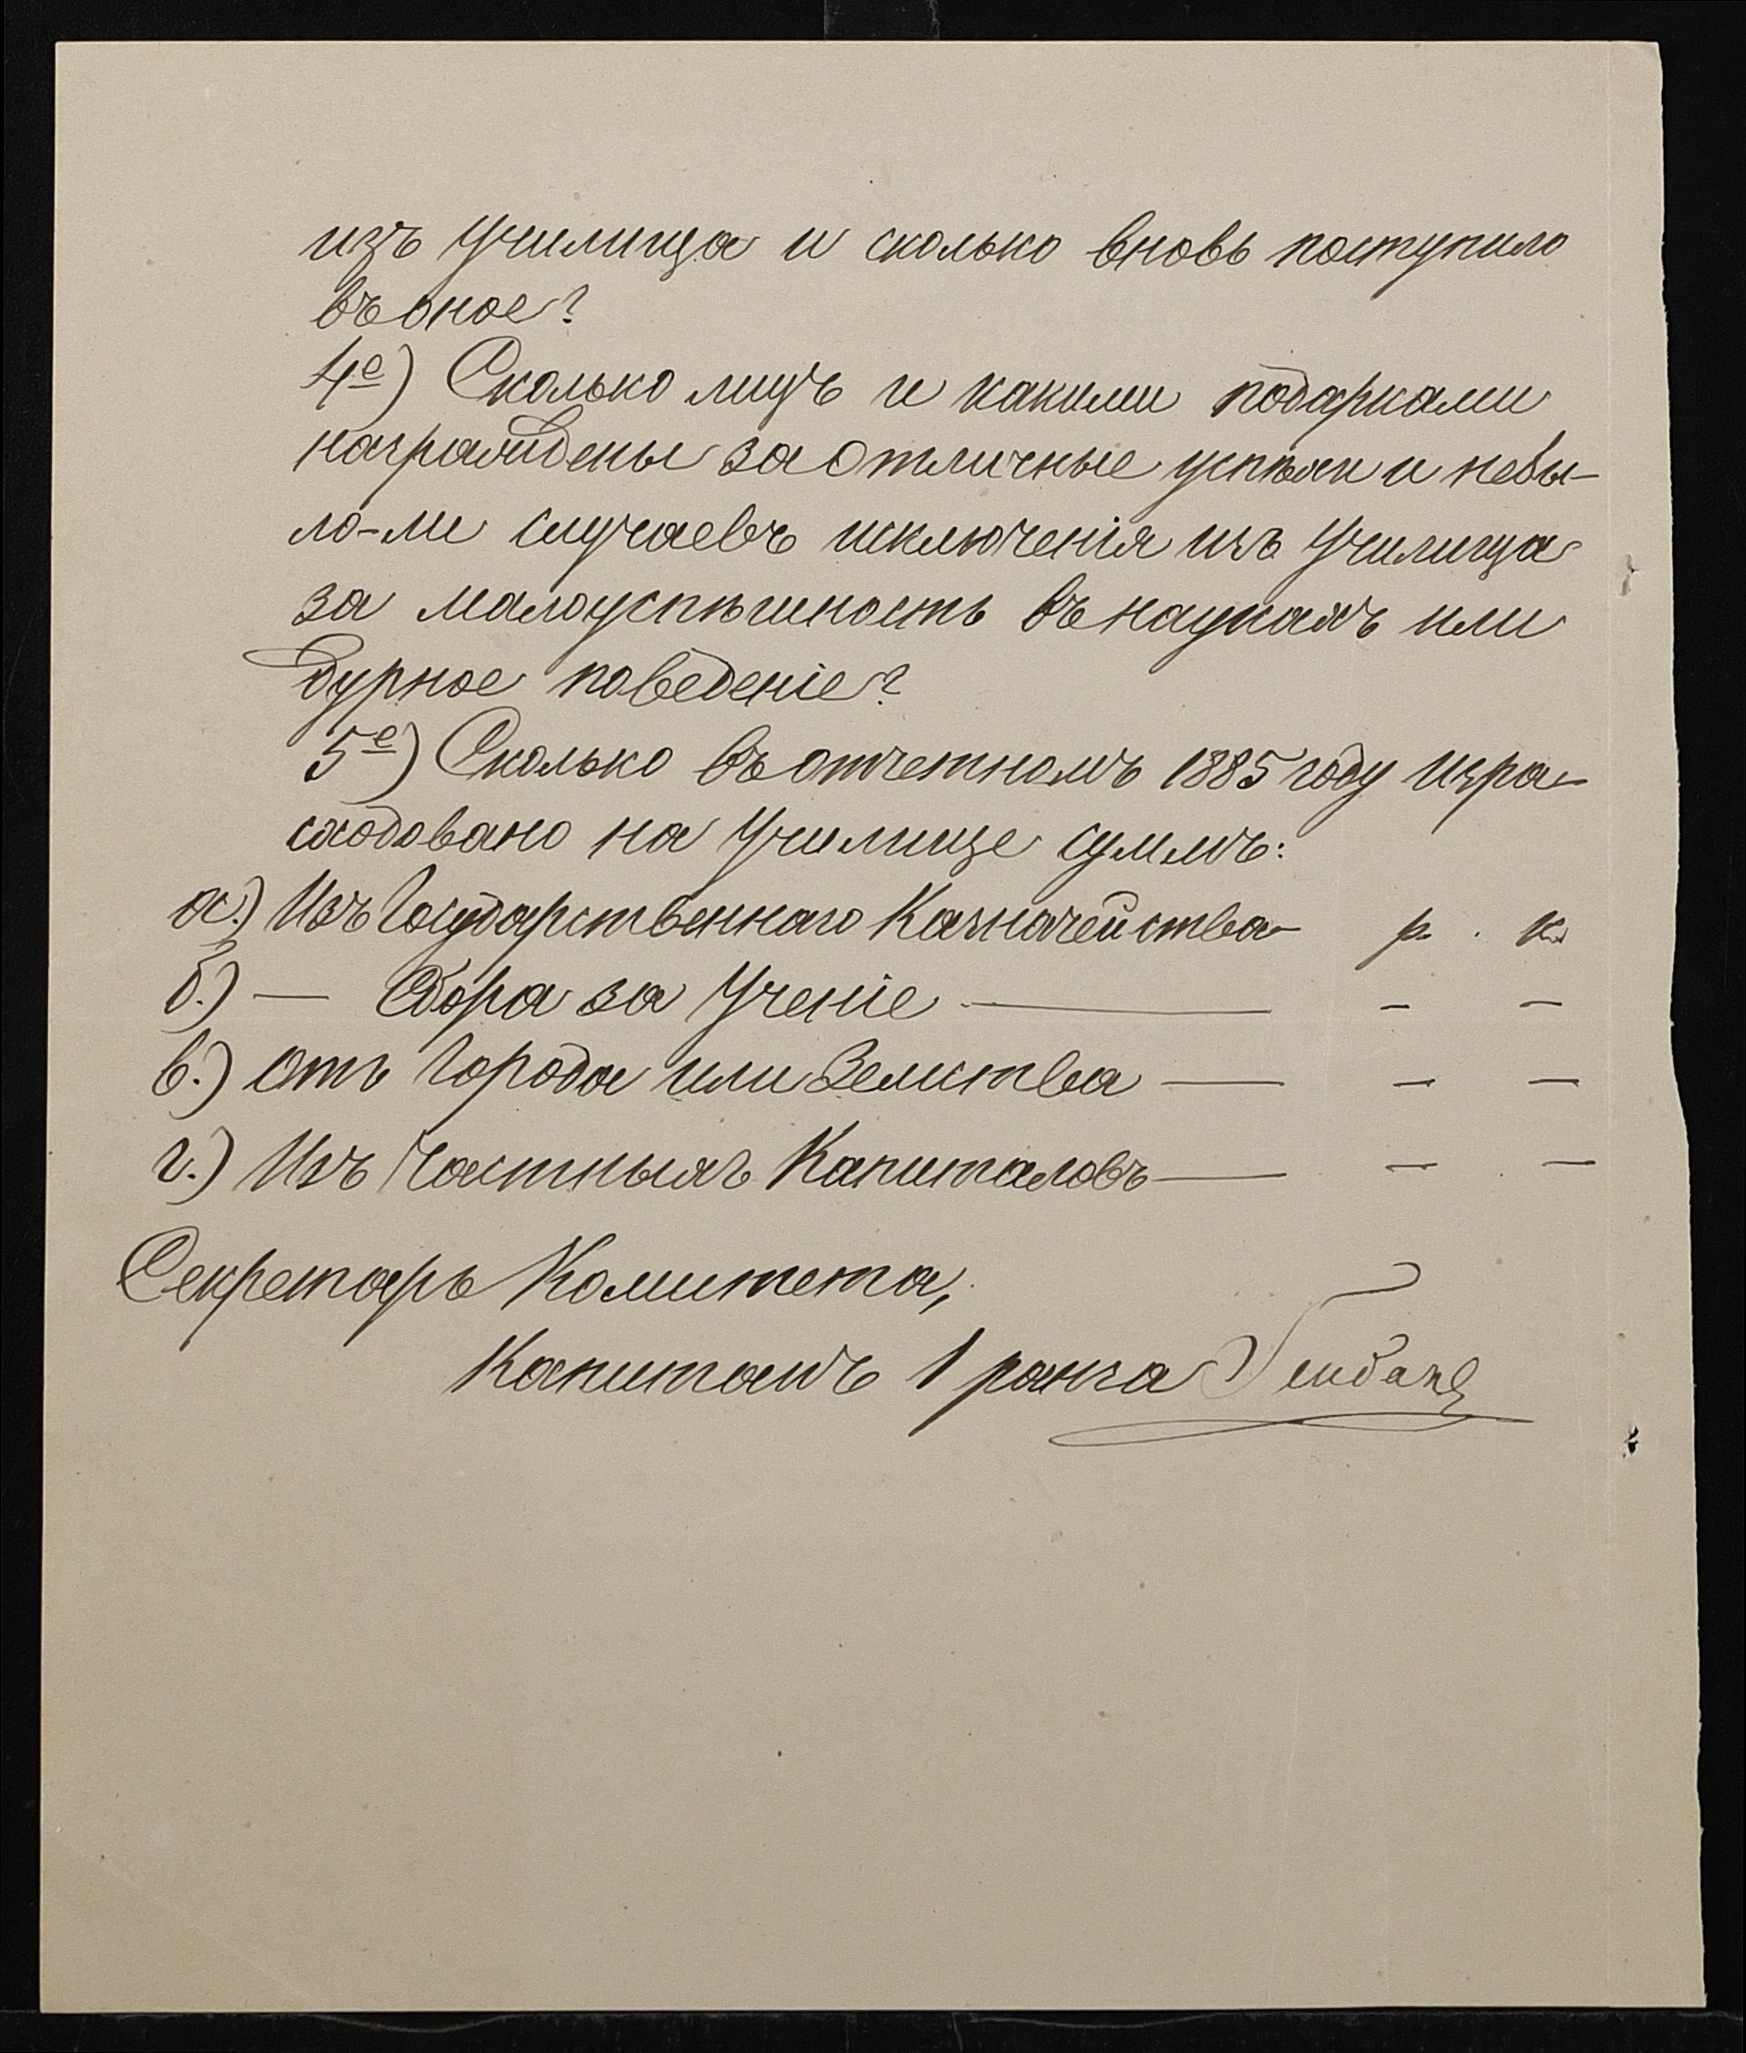 изъ Училища и сколько вновь поступило
въ оное?
4е) Сколько лицъ и какими подарками
награждены за отличные успѣхи и небы-
ло-ли случаевъ исключенія изъ Училища
за малоуспѣшность въ наукахъ или
дурное поведеніе?
5е) Сколько въ отчетномъ 1885 году изра-
сходовано на Училище суммъ:
а.) Изъ Государственнаго Казначейства — р. к.
б.) — Сбора за Ученіе — — —
в.) Отъ Города или Земства — — —
г.) Изъ Частныхъ Капиталовъ — — —
Секретарь Комитета,
Капитанъ 1 ранга